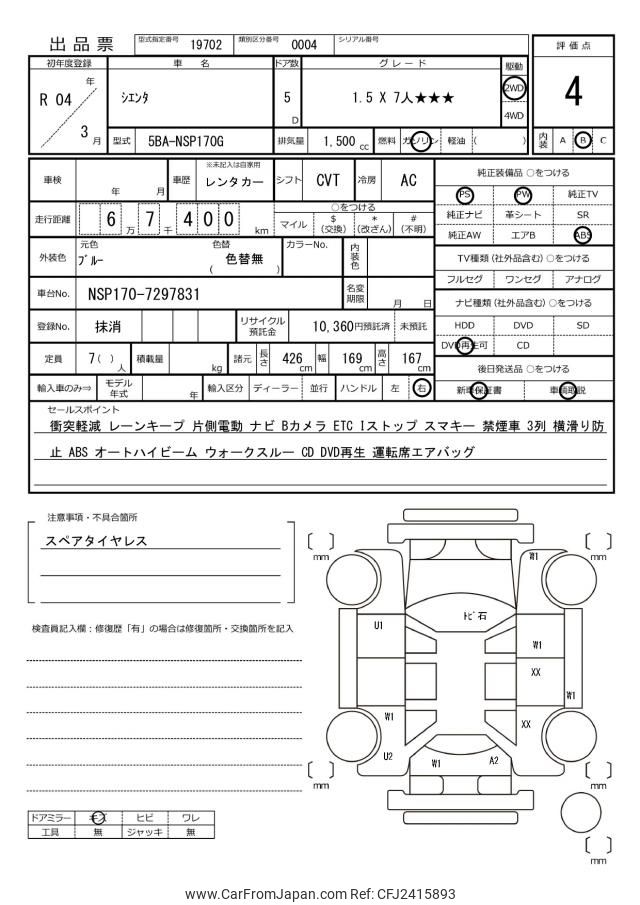 出品票 型式指定番号 19702 類別区分番号 0004 シリアル番号
評価点
4
内装 A B C
初年度登録 車 名 ドア数 グレード 駆動
R 04 年 3 月
シエンタ 5 D 1.5 X 7人★★★ 2WD
4WD
型式 5BA-NSP170G 排気量 1,500 cc 燃料 ガソリン 軽油 ( )
車検 年 月 車歴 ※未記入は自家用 レンタカー シフト CVT 冷房 AC
走行距離 6 万 7 千 4 0 0 km
○をつける
マイル $ (交換) * (改ざん) # (不明)
外装色 元色 ブルー 色替 ( 色替無 ) カラーNo. 内装色
車台No. NSP170-7297831 名変期限 月 日
登録No. 抹消 リサイクル預託金 10,360円預託済 未預託
定員 7 ( ) 人 積載量 kg 諸元 長さ 426 cm 幅 169 cm 高さ 167 cm
輸入車のみ⇒ モデル年式 年 輸入区分 ディーラー 並行 ハンドル 左 右
純正装備品 ○をつける
PS PW 純正TV
純正ナビ 革シート SR
純正AW エアB ABS
TV種類 (社外品含む) ○をつける
フルセグ ワンセグ アナログ
ナビ種類 (社外品含む) ○をつける
HDD DVD SD
DVD再生可 CD
後日発送品 ○をつける
新車保証書 車輌取説
セールスポイント
衝突軽減 レーンキープ 片側電動 ナビ Bカメラ ETC Iストップ スマキー 禁煙車 3列 横滑り防
止 ABS オートハイビーム ウォークスルー CD DVD再生 運転席エアバッグ
注意事項・不具合箇所
スペアタイヤレス
検査員記入欄：修復歴「有」の場合は修復箇所・交換箇所を記入
ドアミラー キズ ヒビ ワレ
工具 無 ジャッキ 無
mm
mm
W1
トビ石
U1
W1
XX
W1
W1
XX
U2
W1
A2
mm
mm
mm
www.CarFromJapan.com Ref: CFJ2415893